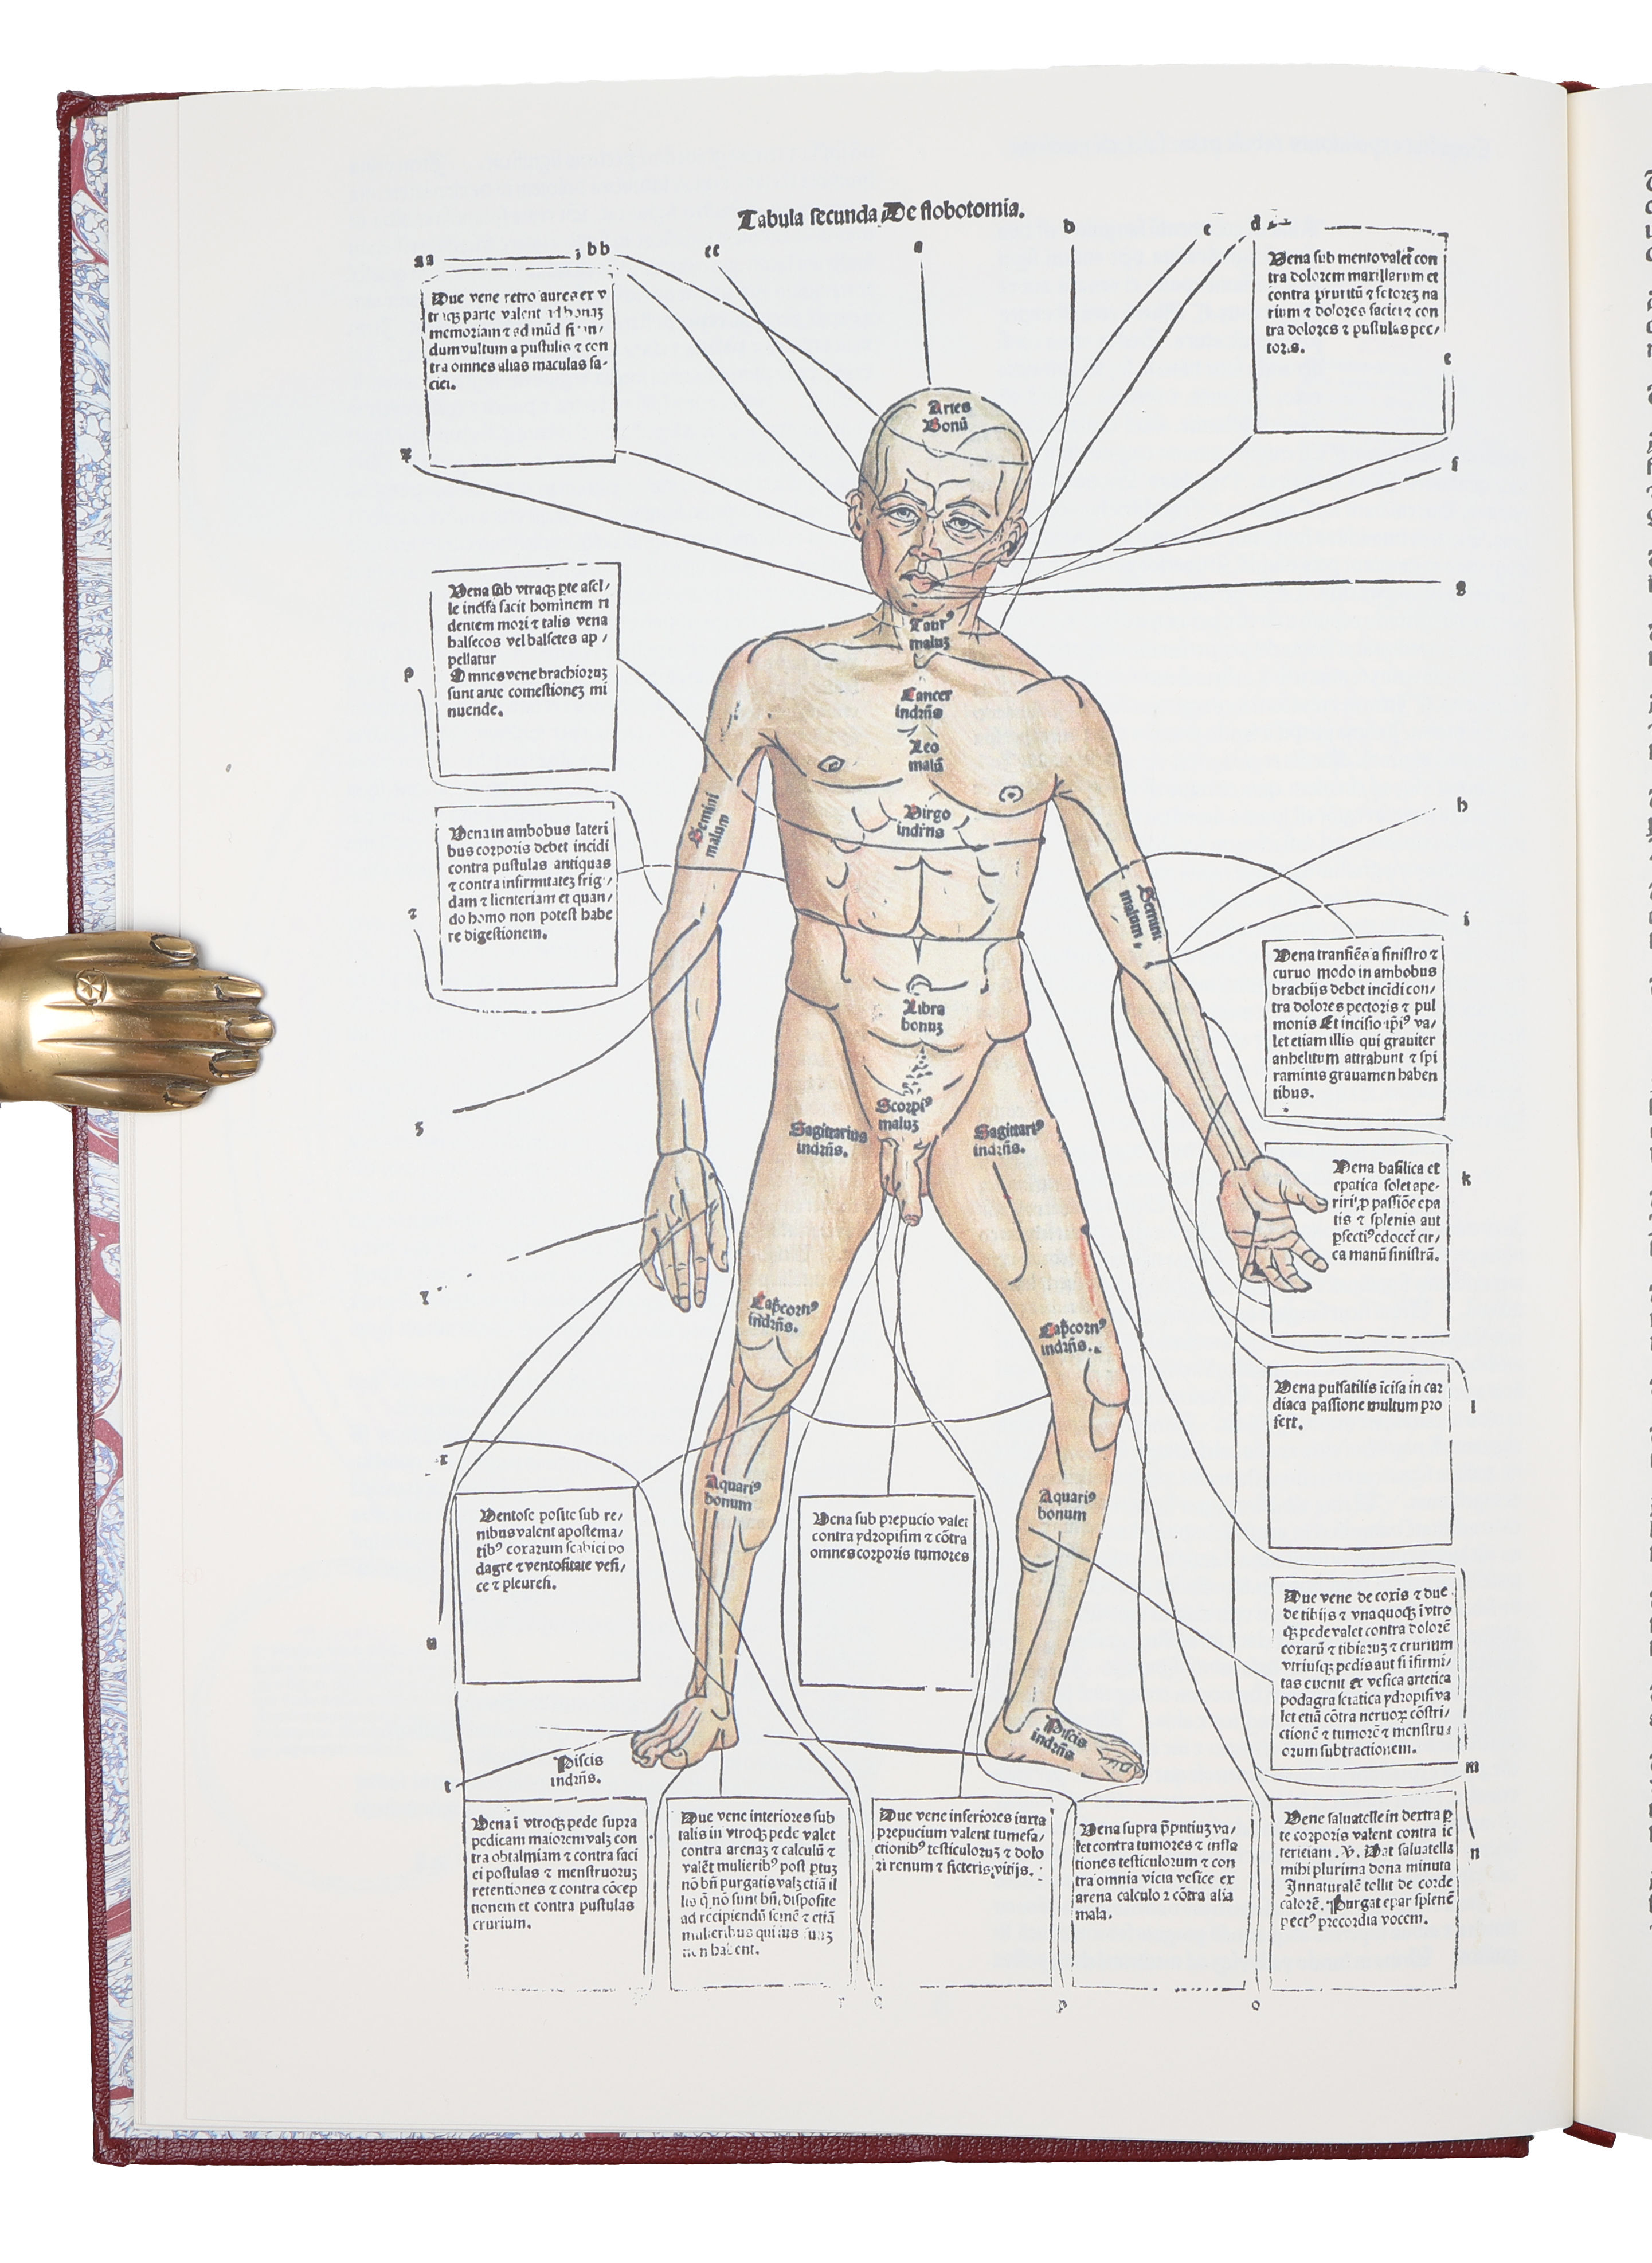 Tabula secunda De flobotomia.
aa
bb
cc
a
b
c
d
Due vene retro aures ex v
traqꝫ parte valent ad bonaꝫ
memoriam ⁊ ad mūdifican/
dum vultum a pustulis ⁊ con
tra omnes alias maculas fa-
ciei.
Vena sub mento valet con
tra dolorem maxillarum et
contra pruritū ⁊ fetoreꝫ na
rium ⁊ dolores faciei ⁊ con
tra dolores ⁊ pustulas pec/
toris.
e
Aries
Bonū
z
f
g
Vena sub vtraqꝫ pte ascl/
le incisa facit hominem ri
dentem mori ⁊ talis vena
balsecos vel balsetes ap/
pellatur
Omnes vene brachioruꝫ
sunt ante comestioneꝫ mi
nuende.
Taurꝰ
maluꝫ
Cancer
indrn̄s
Leo
malū
Virgo
indrn̄s
Gemini
malum
Gemini
malum.
h
i
Vena in ambobus lateri
bus corporis debet incidi
contra pustulas antiquas
⁊ contra infirmitateꝫ frig/
dam ⁊ lienteriam et quan/
do homo non potest habe
re digestionem.
Vena transiēs a sinistro ⁊
curuo modo in ambobus
brachijs debet incidi con/
tra dolores pectoris ⁊ pul
monis Et incisio ipiꝰ va/
let etiam illis qui grauiter
anhelitum attrahunt ⁊ spi
raminis grauamen haben
tibus.
Libra
bonuꝫ
Scorpiꝰ
maluꝫ
Sagittarius
indrn̄s.
Sagittariꝰ
indrn̄s.
Vena basilica et
epatica solet ape-
riri ꝓ passiōe epa
tis ⁊ splenis aut
ca manū sinistrā.
k
Capcornꝰ
indrn̄s.
Capcornꝰ
indrn̄s.
Vena pulsatilis īcisa in car
diaca passione multum pro
fert.
l
Aquariꝰ
bonum
Aquariꝰ
bonum
Ventose posite sub re/
nibus valent apostema/
tibꝰ coxarum scabiei po
dagre ⁊ ventositate vesi/
ce ⁊ pleuresi.
Vena sub prepucio valet
contra ydropisim ⁊ cōtra
omnes corporis tumores
Due vene de coxis ⁊ due
de tibijs ⁊ vna quoqꝫ ī vtro
qꝫ pede valet contra dolorē
coxarū ⁊ tibiaruꝫ ⁊ crurium
vtriusqꝫ pedis aut si īfirmi/
tas euenit ex vesica artetica
podagra sciatica ydropisi va
let etiā cōtra neruoꝝ cōstri/
ctionē ⁊ tumorē ⁊ menstru/
orum subtractionem.
u
t
m
Piscis
indrn̄s.
Piscis
indrn̄s.
Vena ī vtroqꝫ pede supra
pedicam maiorem valꝫ con
tra obtalmiam ⁊ contra faci
ei postulas ⁊ menstruoruꝫ
retentiones ⁊ contra cōcep
tionem et contra pustulas
crurium.
Due vene interiores sub
talis in vtroqꝫ pede valet
contra arenaꝫ ⁊ calculū ⁊
valēt mulieribꝰ post ptuꝫ
nō bn̄ purgatis valꝫ etiā il
lis q̄ nō sunt bn̄ disposite
ad recipiendū semē ⁊ etiā
non habent.
Due vene inferiores iuxta
prepucium valent tumefa/
ctionibꝰ testiculoruꝫ ⁊ dolo
ri renum ⁊ ficteris vitijs.
Vena supra p̄pntiuꝫ va/
let contra tumores ⁊ infla
tiones testiculorum ⁊ con
tra omnia vicia vesice ex
arena calculo ⁊ cōtra alia
mala.
Vene saluatelle in dextra p
te corporis valent contra ic
tericiam .V. Dat saluatella
mihi plurima dona minuta
Innaturalē tollit de corde
calorē. Purgat epar splenē
pectꝰ precordia vocem.
n
p
o